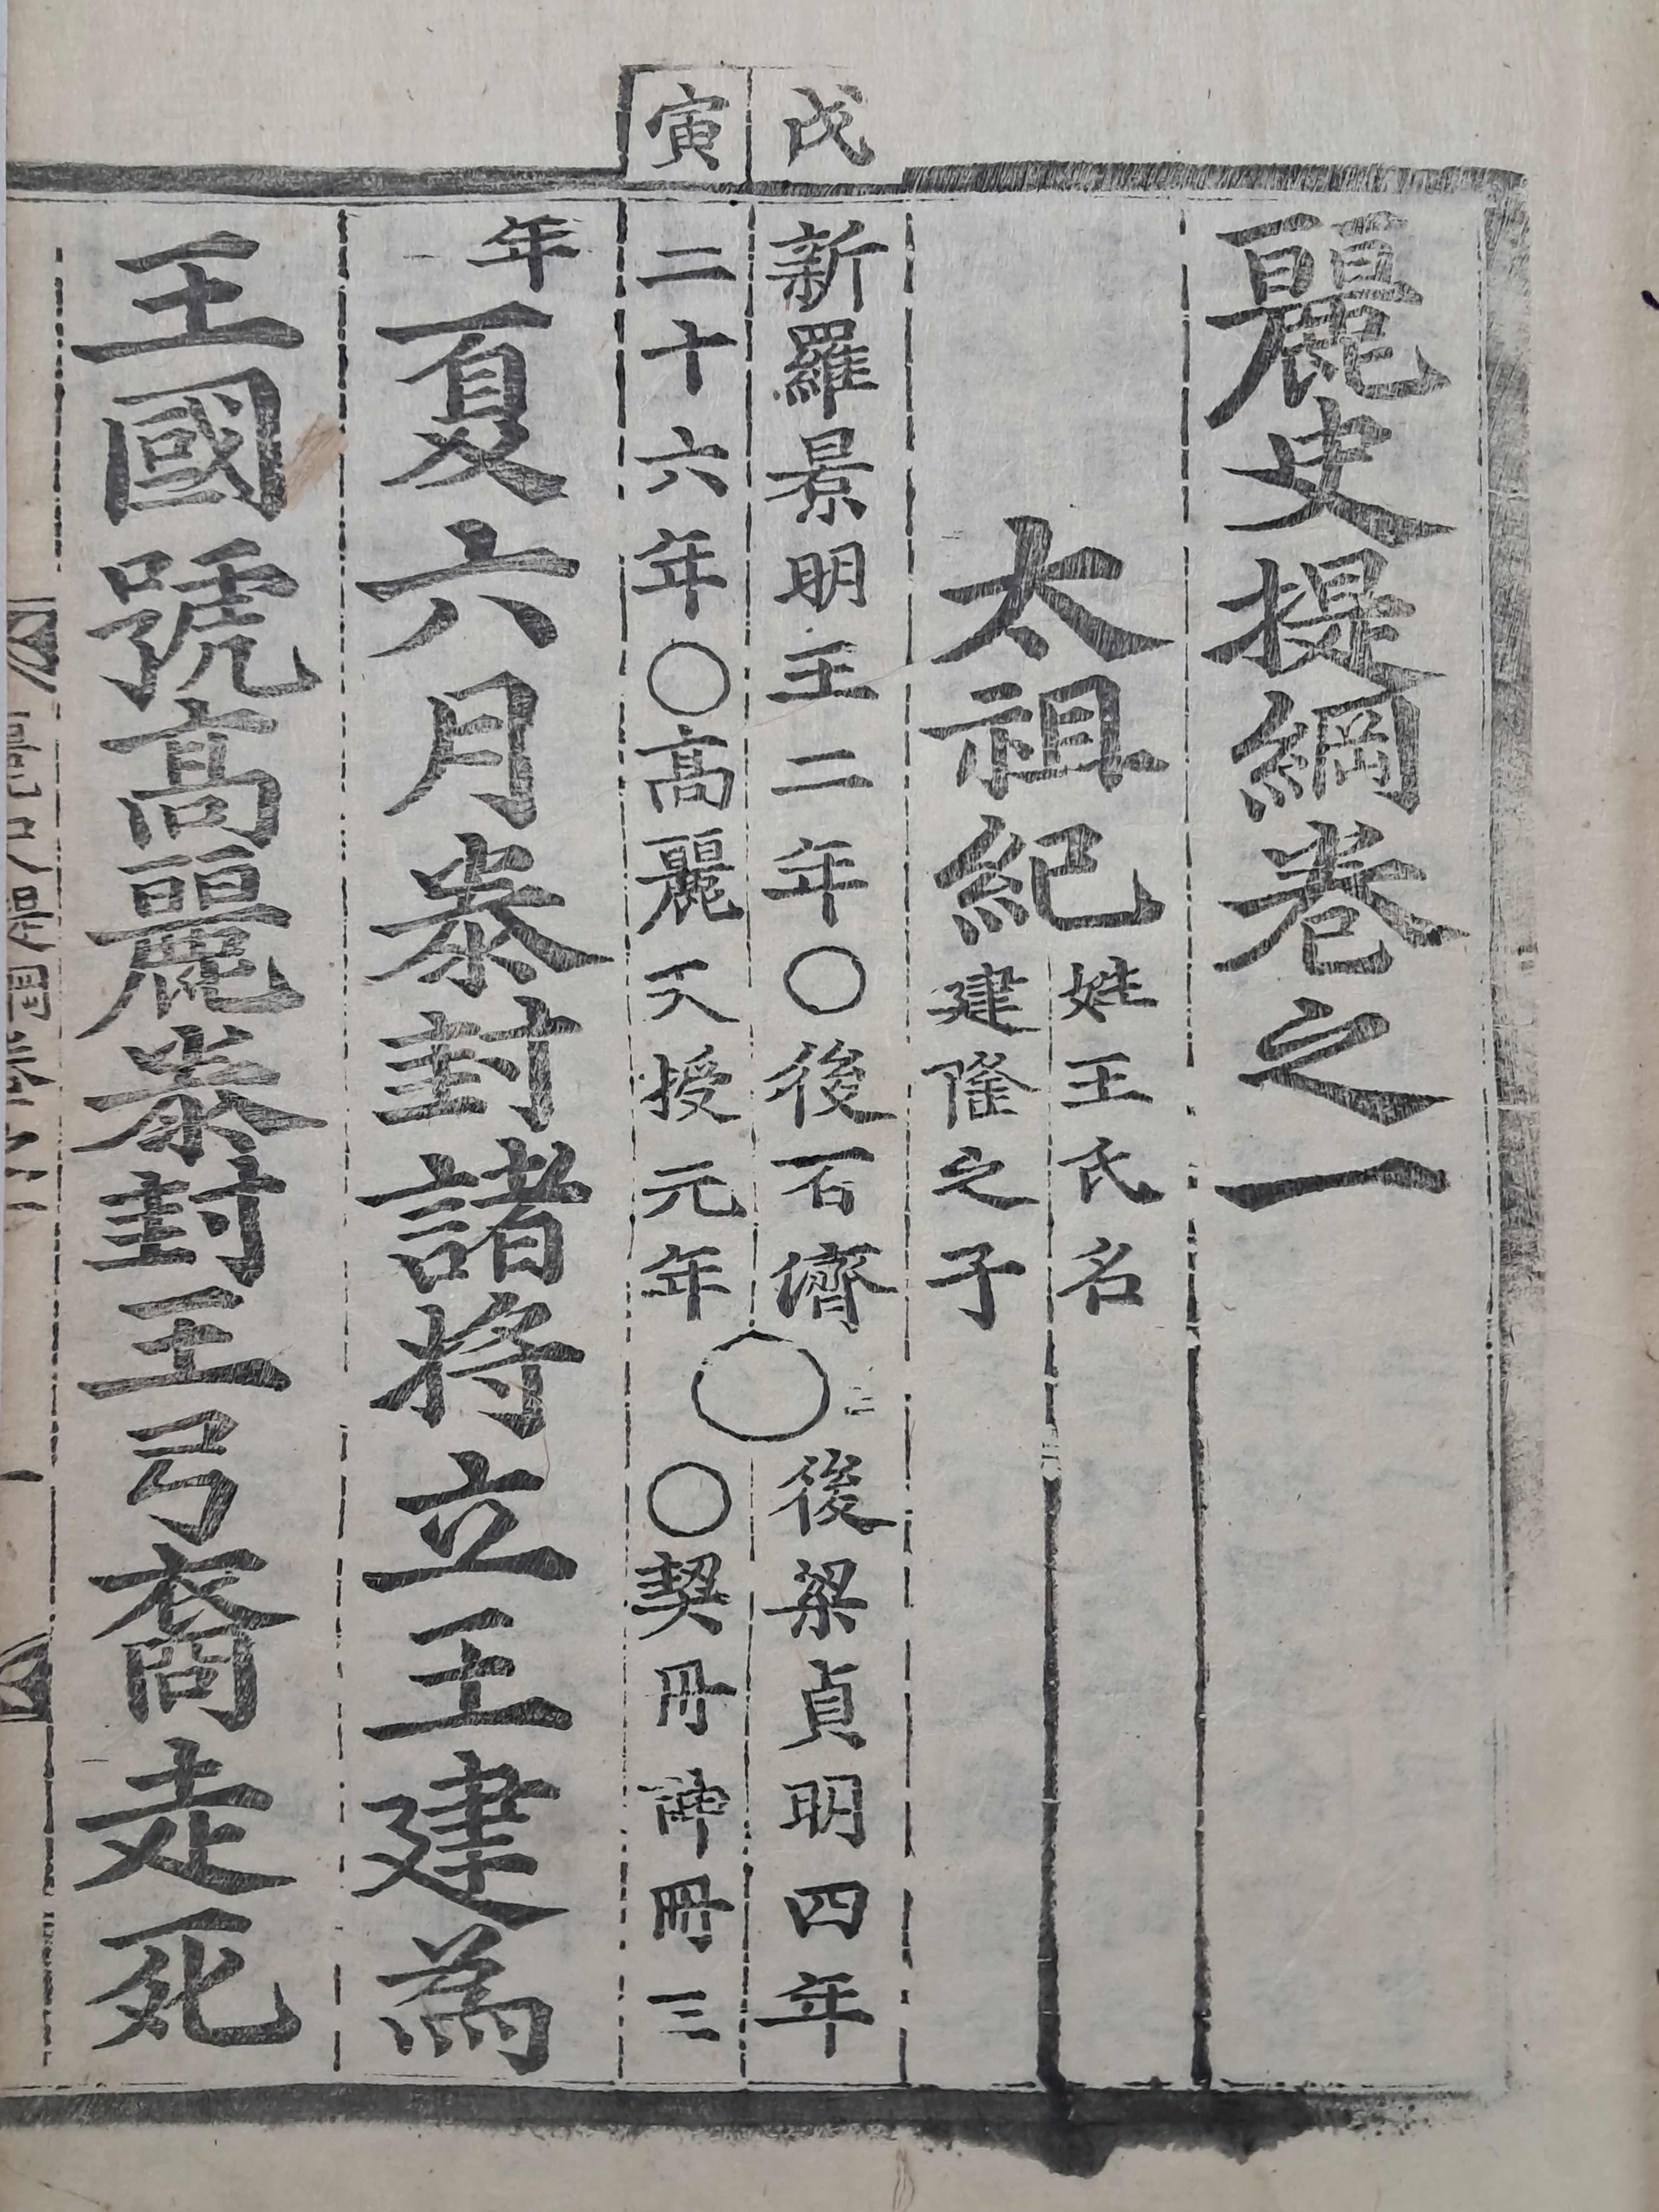 麗史提綱卷之一
太祖紀
姓王氏名
建隆之子
戊寅
新羅景明王二年〇後百濟
二十六年〇高麗天授元年
〇
後梁貞明四年
〇契丹神冊三
年
夏六月泰封諸將立王建為
王國號高麗泰封王弓裔走死